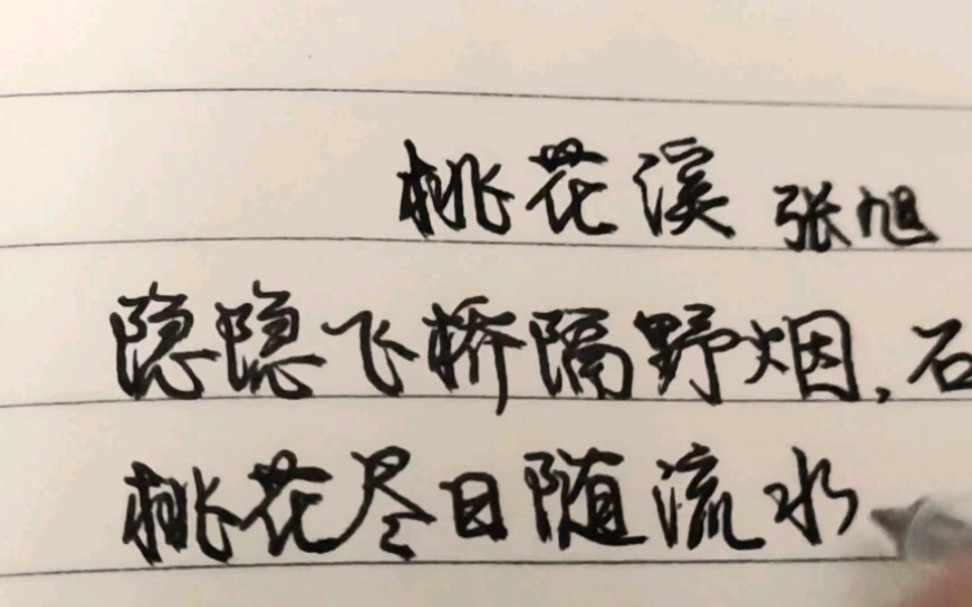 桃花溪 张旭
隐隐飞桥隔野烟,石
桃花尽日随流水